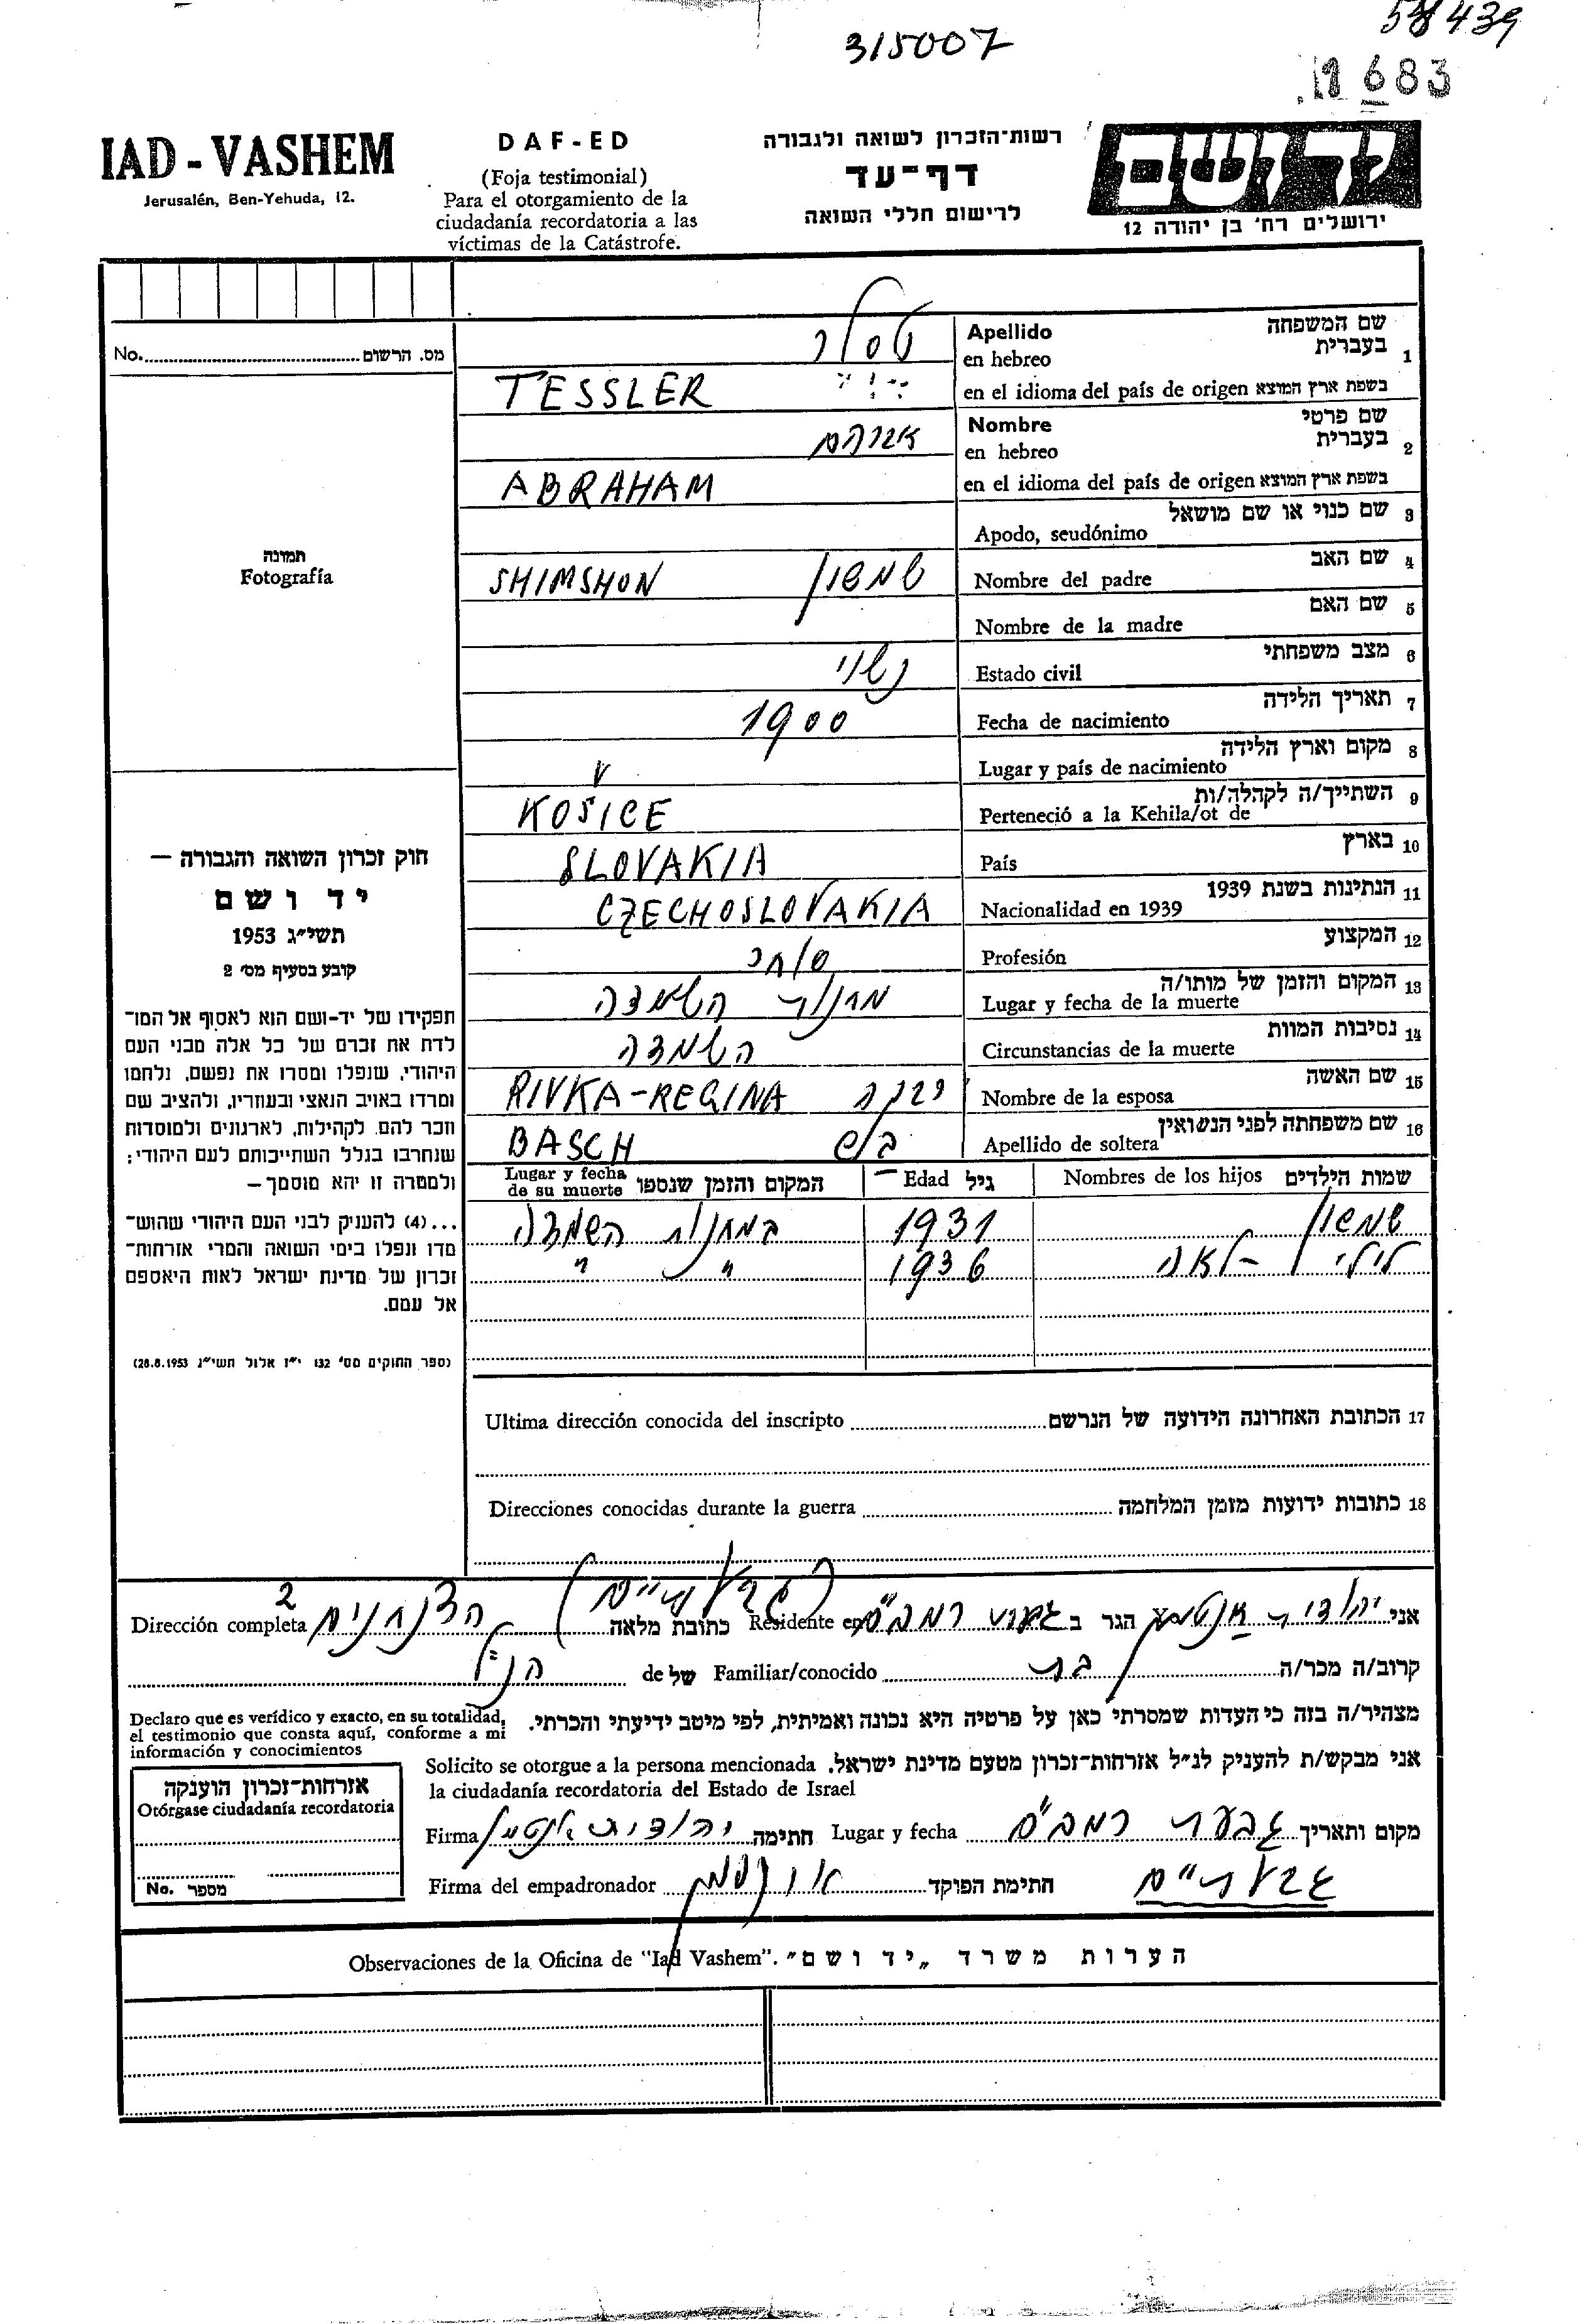 315007
58439
.1683
IAD - VASHEM
Jerusalén, Ben-Yehuda, 12.
DAF-ED
(Foja testimonial)
Para el otorgamiento de la
ciudadanía recordatoria a las
víctimas de la Catástrofe.
רשות־הזכרון לשואה ולגבורה
דף־עד
לרישום חללי השואה
יד ושם
ירושלים רח' בן יהודה 12
No. מס. הרשום
תמונה
Fotografía
1 שם המשפחה בעברית
Apellido en hebreo
טסלר
en el idioma del país de origen בשפת ארץ המוצא
TESSLER
2 שם פרטי בעברית
Nombre en hebreo
אברהם
en el idioma del país de origen בשפת ארץ המוצא
ABRAHAM
3 שם כנוי או שם מושאל
Apodo, seudónimo
4 שם האב
Nombre del padre
SHIMSHON שמשון
5 שם האם
Nombre de la madre
6 מצב משפחתי
Estado civil
נשוי
7 תאריך הלידה
Fecha de nacimiento
1900
8 מקום וארץ הלידה
Lugar y país de nacimiento
9 השתייך/ה לקהלה/ות
Perteneció a la Kehila/ot de
KOŠICE
10 בארץ
País
SLOVAKIA
11 הנתינות בשנת 1939
Nacionalidad en 1939
CZECHOSLOVAKIA
12 המקצוע
Profesión
סוחר
13 המקום והזמן של מותו/ה
Lugar y fecha de la muerte
מחנות השמדה
14 נסיבות המוות
Circunstancias de la muerte
השמדה
15 שם האשה
Nombre de la esposa
RIVKA-REGINA רבקה
16 שם משפחתה לפני הנשואין
Apellido de soltera
BASCH בש
שמות הילדים Nombres de los hijos
גיל Edad
המקום והזמן שנספו Lugar y fecha de su muerte
שמשון 1931 במחנות השמדה
לילי - לאה 1936 " "
חוק זכרון השואה והגבורה —
יד ושם
תשי״ג 1953
קובע בסעיף מס' 2
תפקידו של יד-ושם הוא לאסוף אל המו־
לדת את זכרם של כל אלה מבני העם
היהודי, שנפלו ומסרו את נפשם, נלחמו
ומרדו באויב הנאצי ובעוזריו, ולהציב שם
וזכר להם, לקהילות, לארגונים ולמוסדות
שנחרבו בגלל השתייכותם לעם היהודי;
ולמטרה זו יהא מוסמך —
...(4) להעניק לבני העם היהודי שהוש־
מדו ונפלו בימי השואה והמרי אזרחות־
זכרון של מדינת ישראל לאות היאספם
אל עמם.
(ספר החוקים מס' 132 י״ז אלול תשי״ג 28.8.1953)
17 הכתובת האחרונה הידועה של הנרשם Ultima dirección conocida del inscripto
18 כתובות ידועות מזמן המלחמה Direcciones conocidas durante la guerra
אני יהודית הגר ב גבעת רמב"ם Residente en
(גבעתיים)
כתובת מלאה הצנחנים 2 Dirección completa
קרוב/ה מכר/ה בת Familiar/conocido
של de הנ"ל
מצהיר/ה בזה כי העדות שמסרתי כאן על פרטיה היא נכונה ואמיתית, לפי מיטב ידיעתי והכרתי.
Declaro que es verídico y exacto, en su totalidad,
el testimonio que consta aquí, conforme a mi
información y conocimientos
אני מבקש/ת להעניק לנ״ל אזרחות־זכרון מטעם מדינת ישראל.
Solicito se otorgue a la persona mencionada
la ciudadanía recordatoria del Estado de Israel
מקום ותאריך גבעת רמב"ם Lugar y fecha
חתימה יהודית Firma
גבעתיים
חתימת הפוקד Firma del empadronador
אזרחות־זכרון הוענקה
Otórgase ciudadanía recordatoria
No. מספר
הערות משרד „יד ושם״ Observaciones de la Oficina de "Iad Vashem".